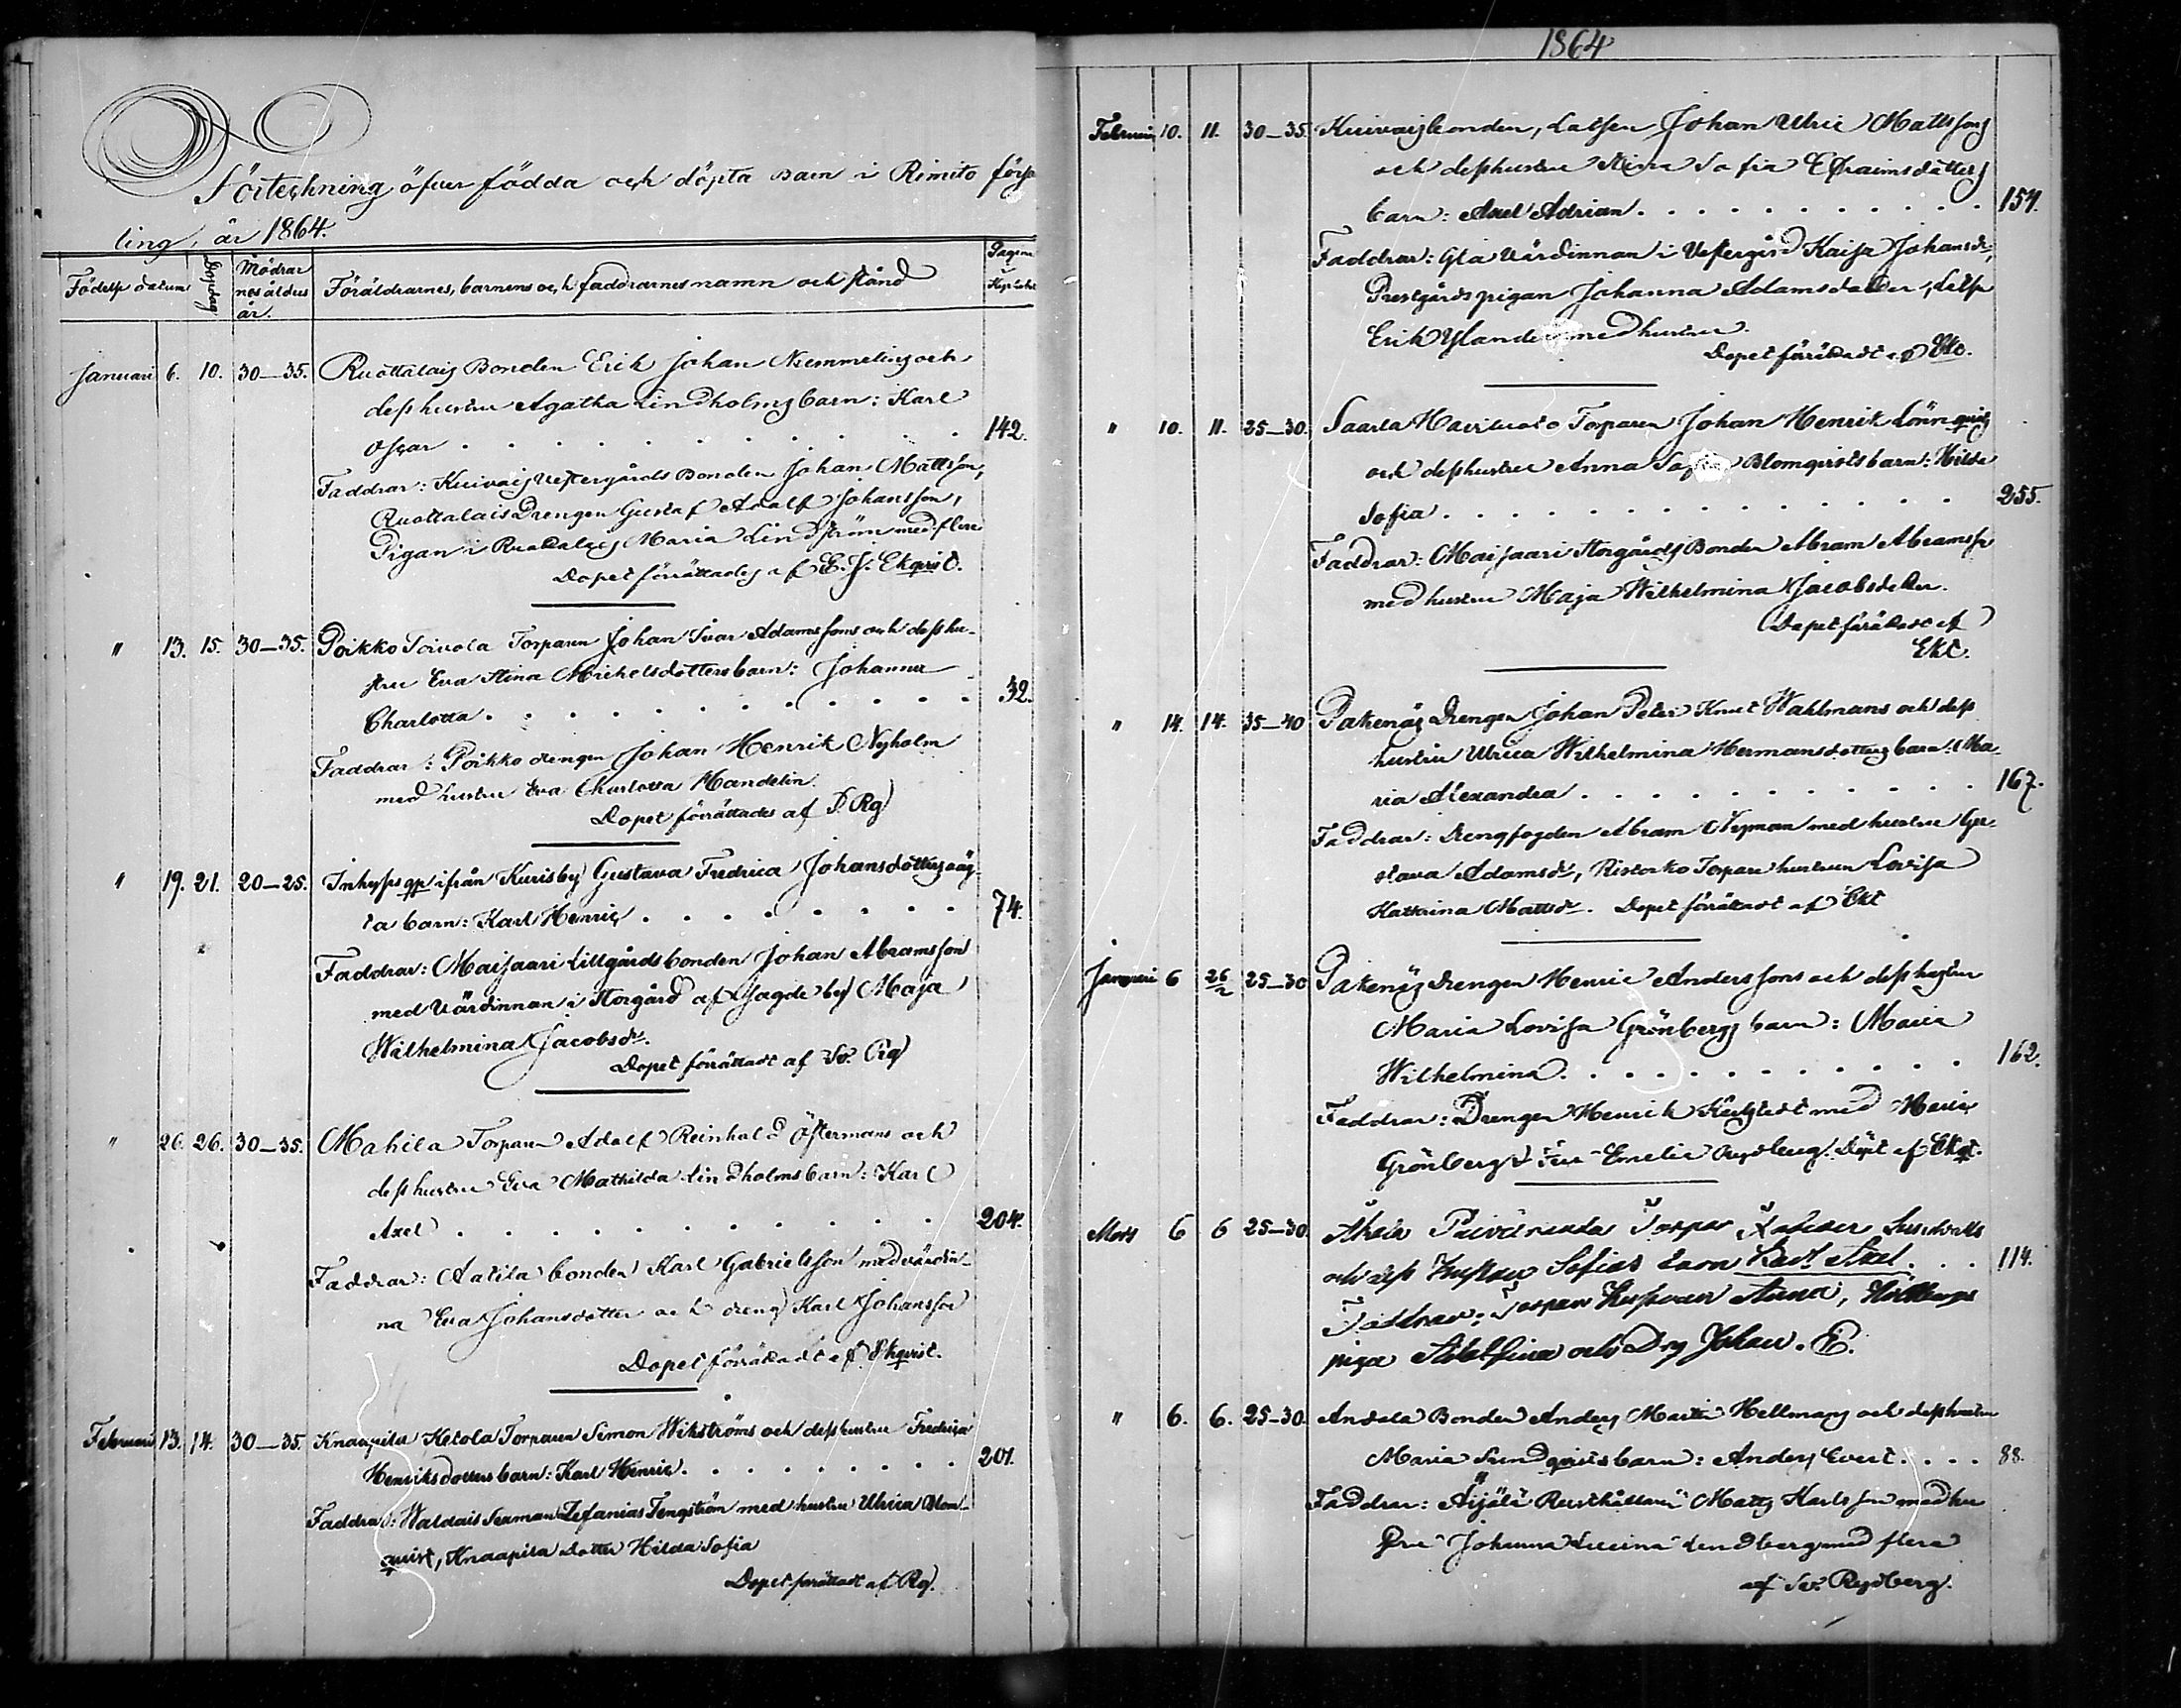 Förteckning öfver födda och döpta Barn i Rimito förs
ling, år 1864.
Födelse datum Dopdag Mödrar nes ålder år. Föräldrarnes, barnens och faddrarnes namn och stånd Pagina
Januari 6. 10. 30–35. Ruottalais Bonden Erik Johan Nremmelins och
dess hustru Agatha Lindholms barn: Karl
Oscar 142.
Faddrar: Kuivais Vestergårds Bonden Johan Mattsson,
Ruottalais Drengen Gustaf Adolf Johansson,
Pigan i Ruottalais Maria Lindström med flere
Dopet förrättades af E. J. Ekqvist.
" 13. 15. 30–35. Poikko Toivola Torparen Johan Ivar Adamssons och dess hu-
stru Eva Stina Michelsdotters barn: Johanna
Charlotta 32.
Faddrar: Poikko drengen Johan Henrik Nyholm
med hustru Eva Charlotta Mandelin.
Dopet förrättades af Rg
" 19. 21. 20–25. Inhyses qp ifrån Kurisby Gustava Fredrica Johansdotters oäg-
ta barn: Karl Henric 74.
Faddrar: Maisaari Lillgårds bonden Johan Abramsson
med Värdinnan i Storgård af sagde by Maja
Wilhelmina Jacobsdr.
Dopet förrättadt af Sv. Rg
" 26. 26. 30–35. Mahila Torparen Adolf Reinhold Östermans och
dess hustru Eva Mathilda Lindholms barn: Karl
Axel 204.
Faddrar: Aatila bonden Karl Gabrielsson med värdin-
na Eva Johansdotter och dreng Karl Johansson
Dopet förrättadt af Ekqvist.
Februari 13. 14. 30–35. Knaapila Ketola Torparen Simon Wikströms och dess hustru Fredrica
Henriksdotters barn: Karl Henric 201.
Faddrar: Waldais Seaman Zefanias Tengström med hustru Ulrica Blom-
qvist, Knaapila Dotter Hilda Sofia
Dopet förrättadt af Rg.
1864
Februari 10. 11. 30–35. Kuivais bonden, Johan Ulric Mattssons
och dess hustru Stina Sofia Efraimsdotters
barn: Axel Adrian 157.
Faddrar: Gla Värdinnan i Vestergård Kaisa Johansdr,
Prestgårds pigan Johanna Adamsdotter,
Erik Ylander med hustru.
Dopet förrättadt af Ekt.
" 10. 11. 25–30. Saarla Torparen Johan Henrik Lönnqvists
och dess hustru Anna Sofia Blomqvists barn: Hilda
Sofia 255.
Faddrar: Maisaari Storgårds Bonden Abram Abramsson
med hustru Maja Wilhelmina Jacobsdotter.
Dopet förrättadt af
Ekt.
" 14. 14. 35–40 Pakenäs Drengen Johan Peter Knut Wahlmans och dess
hustru Ulrica Wilhelmina Hermansdotters barn: Ma-
ria Alexandra 167.
Faddrar: Drengfogden Abram Nyman med hustru Gu-
stava Adamsdr, Ristorko Torpare hustrun Lovisa
Kathrina Mattsdr. Dopet förrättadt af Ekt
Januari 6 26/2 25–30 Pakenäs Drengen Henric Anderssons och dess hustru
Maria Lovisa Grönbergs barn: Maria
Wilhelmina 162.
Faddrar: Drengen Henrik med Maria
Grönberg Emelie Rydberg. Döpt af Ekqt.
Mars 6 6 25–30. Torpar
och dess hustru Sofias barn Karl Axel 114.
Faddrar: Torpar hustrun Anna,
piga Adelfina och Drg Johan. E.
" 6. 6. 25–30. Andala Bonden Anders Martin Hellmans och dess hustru
Maria Sundqvists barn: Anders Evert 88.
Faddrar: Äijälä Rusthållaren Matts Karlsson med hu
stru Johanna Lovina Lindberg med flera
af Sv. Rydberg.